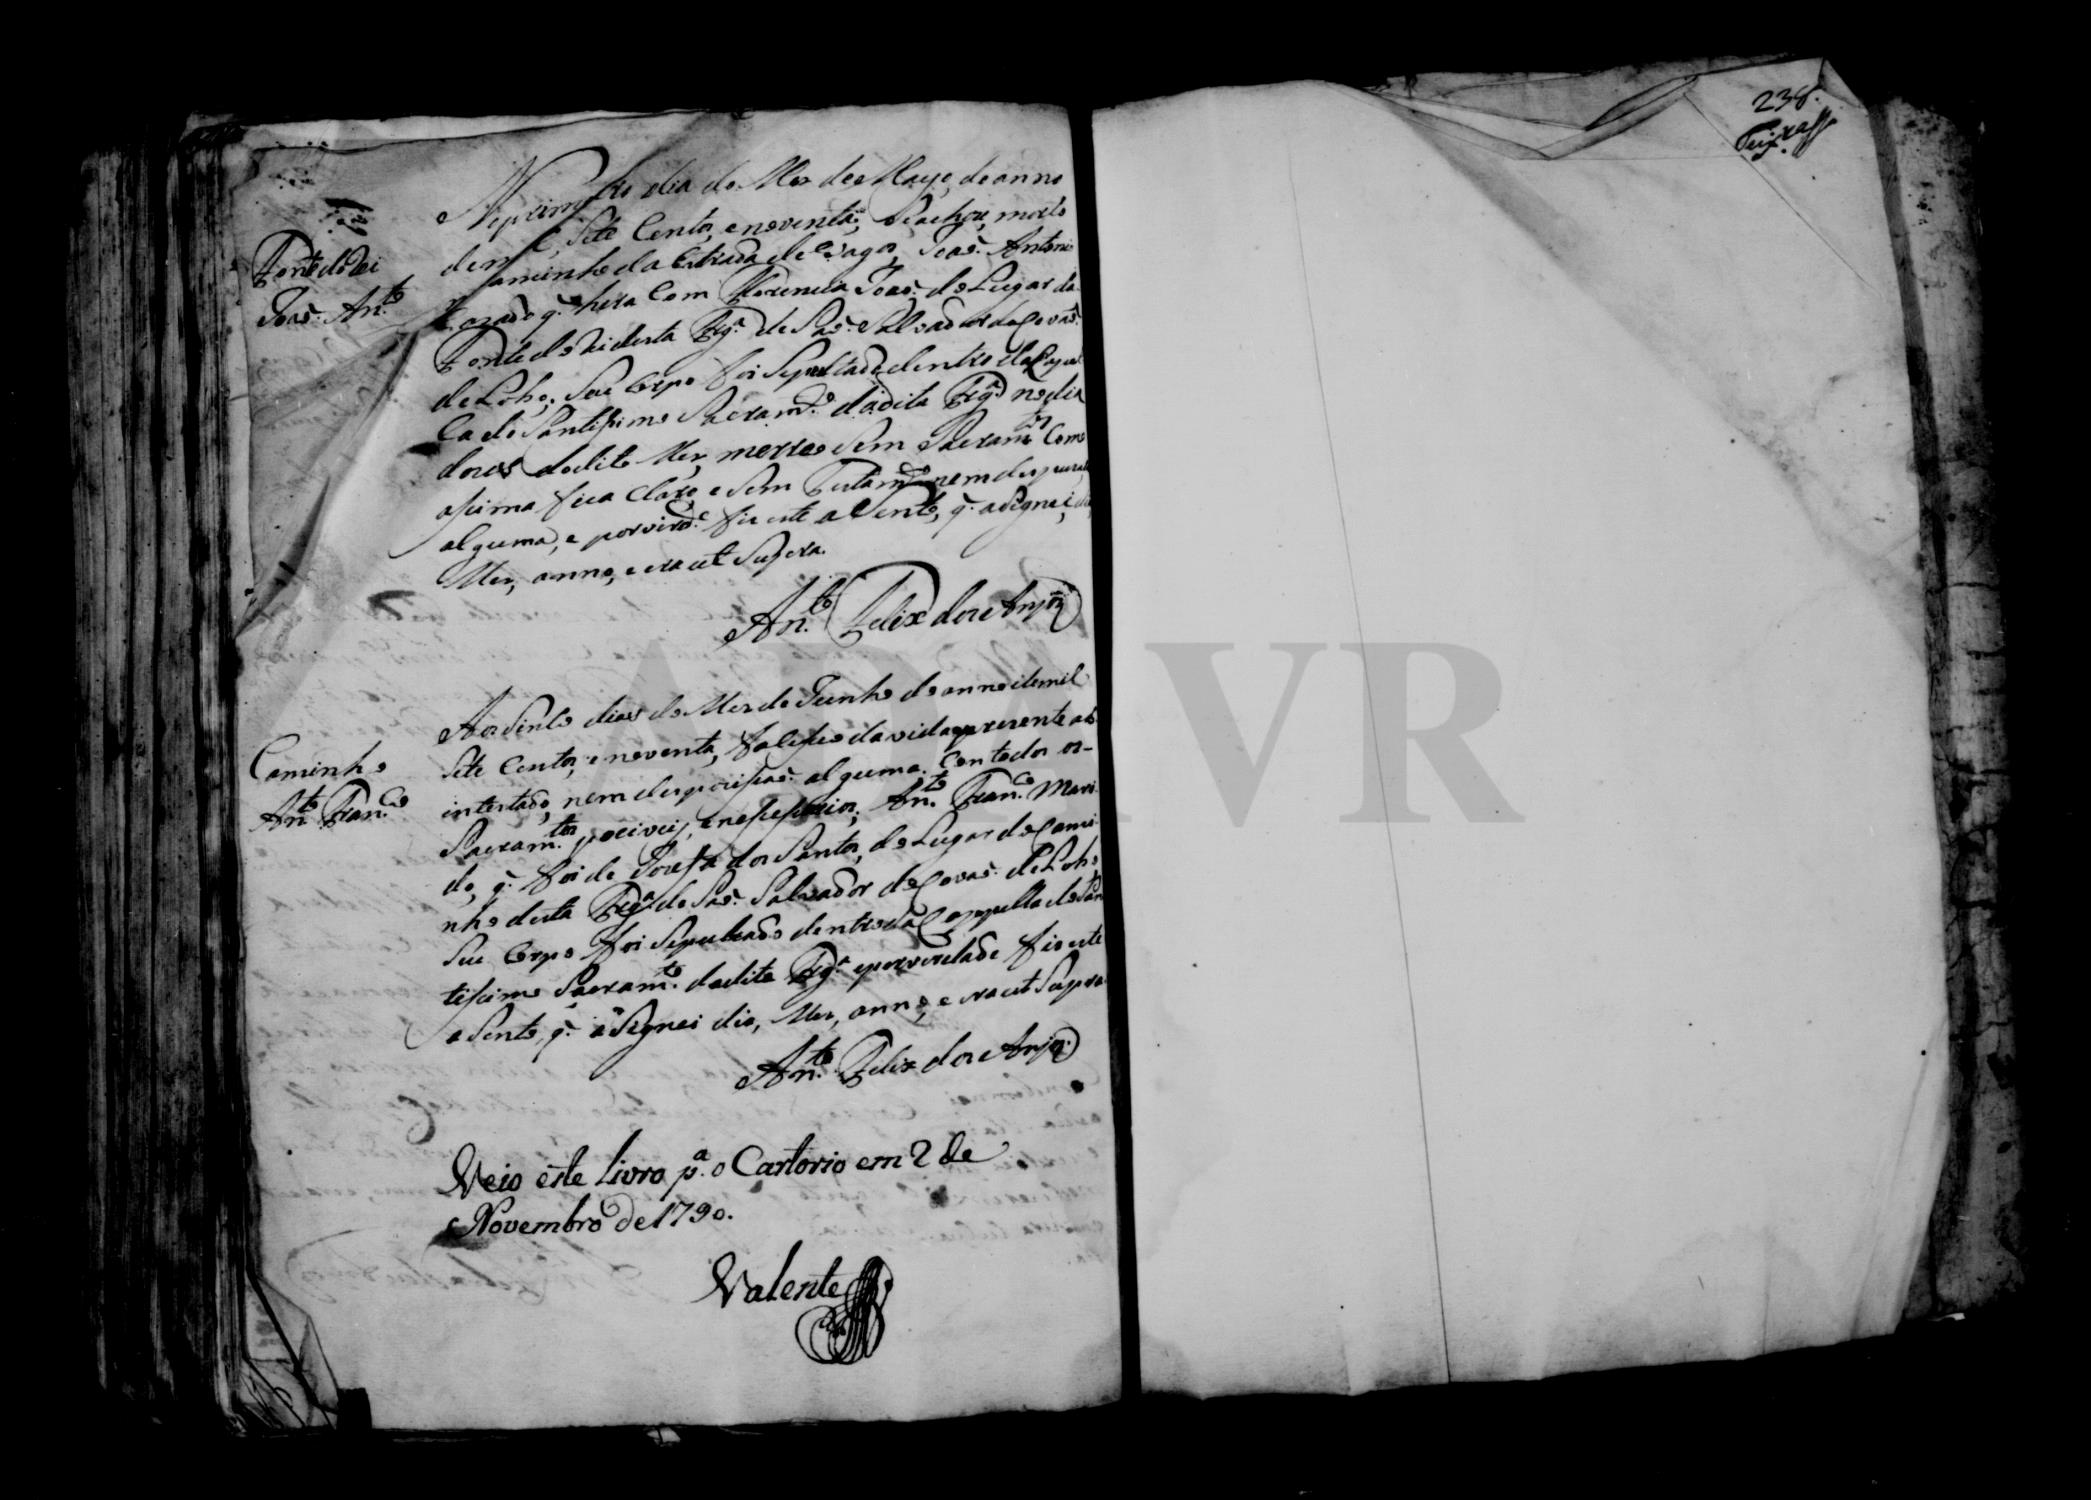 238.
Teixra
No primeiro dia do Mes de Mayo, do anno
de m Sete Centos, e noventa, Se achou, morto
caminho da Estrada de Vagos, Joaõ Antonio
Cazado q. hera Com Florencia Joaõ do Lugar da
Fonte do Rei desta Frga. de Saõ Salvador de Covaõ
do Lobo, Seu Corpo foi Sepultado dentro da Capel
la do Santisimo Sacramto. da dita Frga. no dia
dois do dito Mes, morreo Sem Sacramtos Como
asima fica Claro, e Sem Testamto. nem despuzisaõ
alguma, e por virde. fis este a Sento, q. asignei, dia,
Mes, anno, e era ut Supera.
Anto. Felix dos Anjos
Fonte do Rei
Joaõ Anto.
Aos Sinco dias do Mes de Junho do anno de mil
Sete Centos, e noventa, faleseo da vida prezente ab
intestado, nem despozisaõ alguma. Con todos os
Sacramtos. pociveis, e nesesarios, Anto. Franco. Mari-
do, q. foi de Josefa dos Santos, do Lugar do Cami-
nho desta Frga. de Saõ Salvador de Covaõ do Lobo
Seu Corpo foi Sepultado dentro da Cappella do San
tisimo Sacramto. da dita Frga. e por verdade fis este
a Sento, q. aSignei dia, Mes, anno, e era ut Supra
Anto. Felix dos Anjos
Caminho
Anto. Franco
Veio este Livro pa. o Cartorio em 2 de
Novembro de 1790.
Valente
ADAVR